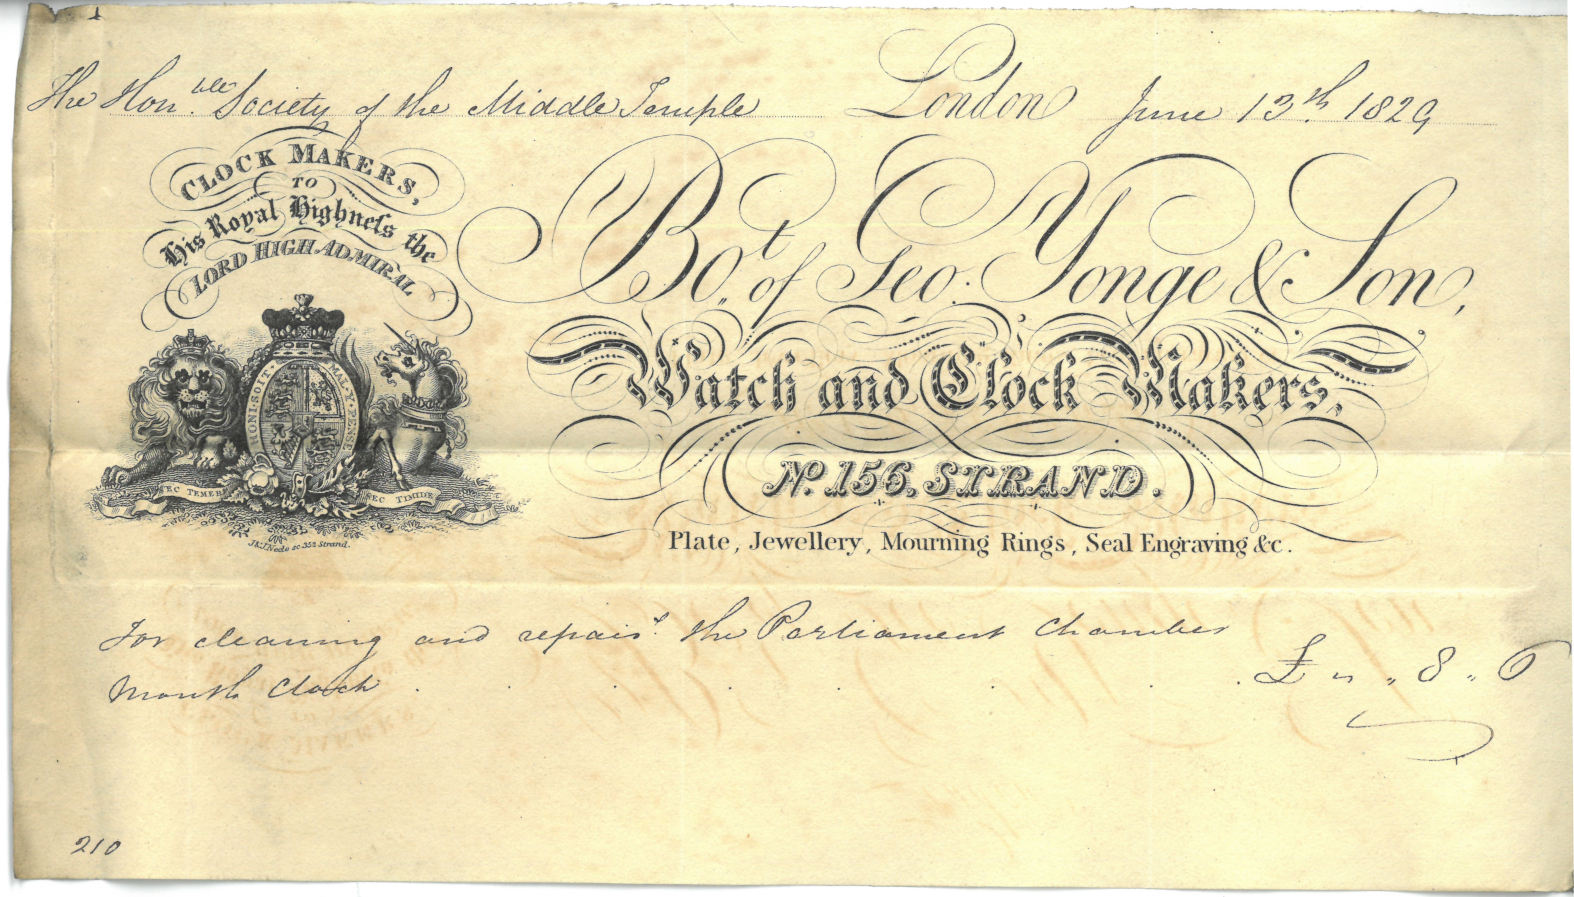 The Hon.ble Society of the Middle Temple London June 13th. 1829
CLOCK MAKERS,
TO
His Royal Highneſs the
LORD HIGH ADMIRAL
Bot. of Geo: Yonge & Son,
Watch and Clock Makers,
No. 156, STRAND.
Plate, Jewellery, Mourning Rings, Seal Engraving &c.
HONI·SOIT· MAL·Y·PENSE
NEC TEMERE NEC TIMIDE
J&J Neele sc. 352 Strand.
For cleaning and repairg. the Parliament Chamber
Month Clock . . . . . . £ " " 8 " 6
210